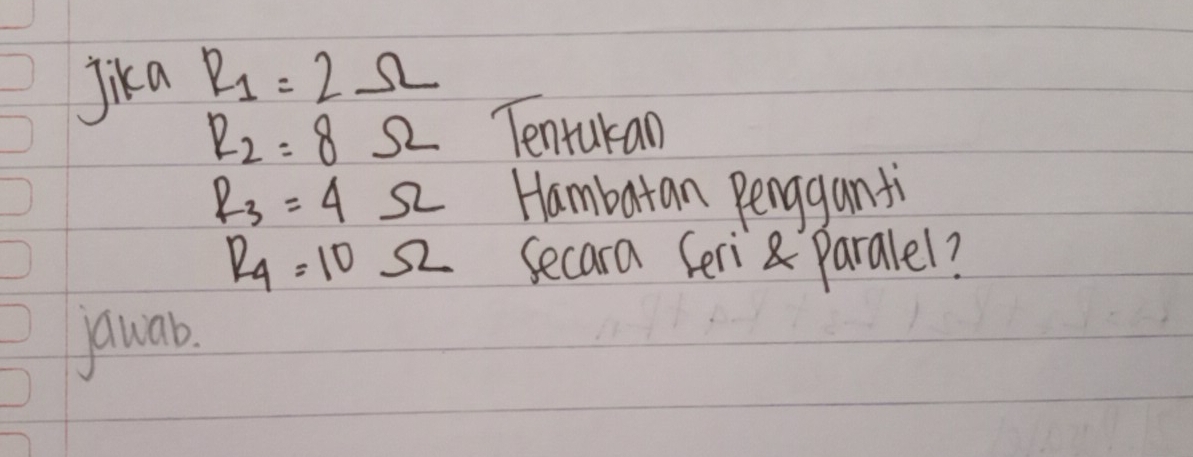 Jika R1 = 2 Ω
R2 = 8 Ω Tentukan
R3 = 4 Ω Hambatan Pengganti
R4 = 10 Ω Secara Seri & Paralel?
jawab.